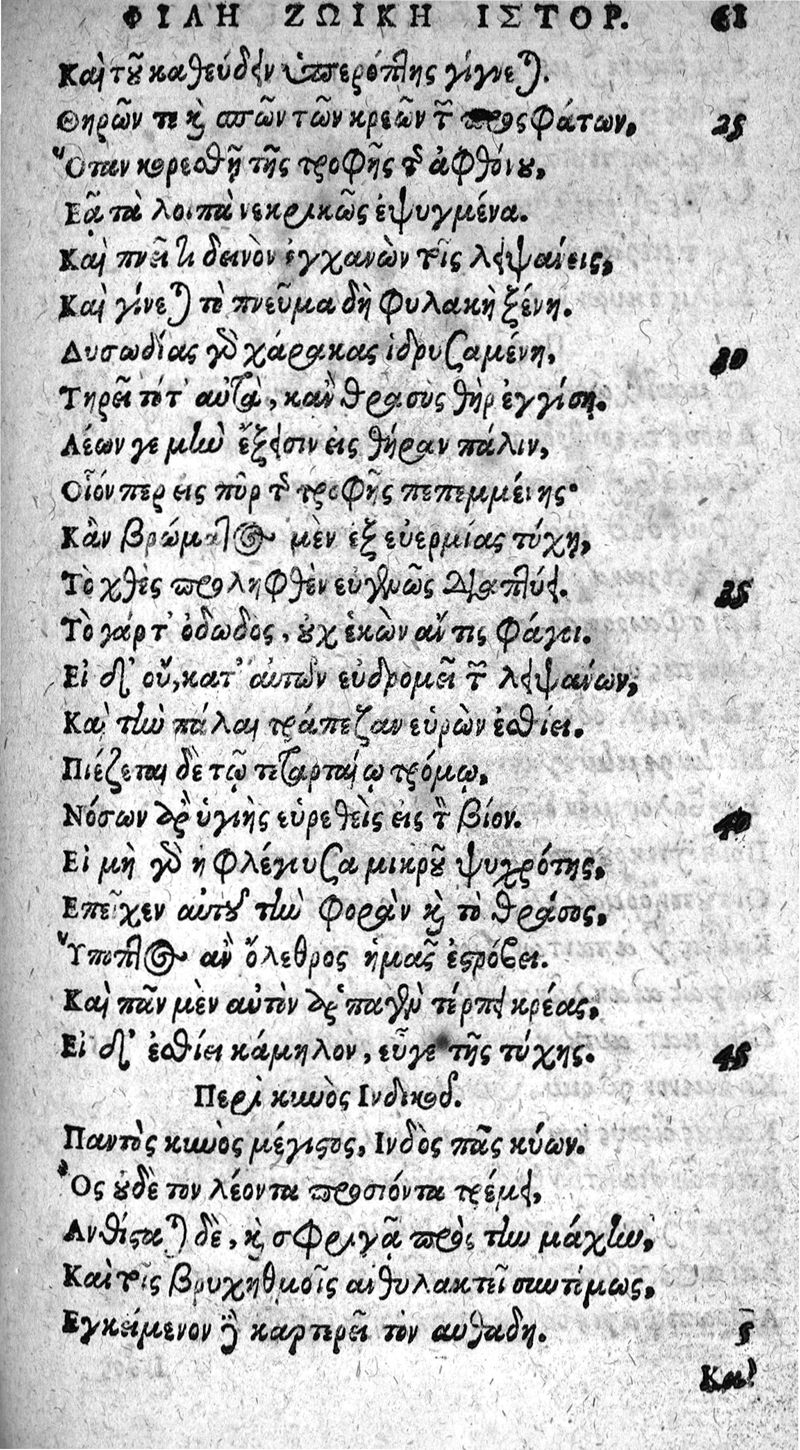 ΦΙΛΗ ΖΩΙΚΗ ΙΣΤΟΡ. 61
Καὶ τοῦ καθεύδειν ὑπερόπλης γίγνεται.
Θηρῶν τε καὶ σπῶν τῶν κρεῶν τῶν προσφάτων, 25
Ὅταν κορεσθῇ τῆς τροφῆς τῆς ἀφθόνου,
Εᾷ τὰ λοιπὰ νεκρικῶς ἐψυγμένα.
Καὶ πνεῖ τι δεινὸν ἐγχανὼν τοῖς λειψάνοις,
Καὶ γίνεται τὸ πνεῦμα δὴ φυλακὴ ξένη.
Δυσωδίας γὰρ χάρακας ἱδρυσαμένη, 30
Τηρεῖ τότ' αὐτὰ, κἂν θρασὺς θὴρ ἐγγίσῃ.
Λέων γε μὴν ἔξεισιν εἰς θήραν πάλιν,
Οἷόν περ εἰς πῦρ τῆς τροφῆς πεπεμμένης·
Κἂν βρώματος μὲν ἐξ εὐερμίας τύχῃ,
Τὸ χθὲς προληφθὲν εὐγενῶς διαπτύει. 35
Τὸ γάρ τ' ὀδωδὸς, οὐχ ἑκὼν ἄν τις φάγοι.
Εἰ δ' οὔ, κατ' αὐτῶν εὐδρομεῖ τῶν λειψάνων,
Καὶ τὴν πάλαι τράπεζαν εὑρὼν ἐσθίει.
Πιέζεται δὲ τῷ τεταρταίῳ τρόμῳ,
Νόσων παρ' ὑγιὴς εὑρεθεὶς εἰς τὸν βίον. 40
Εἰ μὴ γὰρ ἡ φλέγουσα μικροῦ ψυχρότης,
Επεῖχεν αὐτοῦ τὴν φορὰν καὶ τὸ θράσος,
Ὕποπτος ἂν ὄλεθρος ἡμᾶς ἐστρόβει.
Καὶ πᾶν μὲν αὐτὸν παρὰ παγὺ τέρπει κρέας,
Εἰ δ' ἐσθίει κάμηλον, εὖγε τῆς τύχης. 45
Περὶ κυνὸς Ινδικοῦ.
Παντὸς κυνὸς μέγιστος, Ινδὸς πᾶς κύων.
Ὃς οὐδὲ τον λέοντα προσιόντα τρέμει,
Ανθίσταται δὲ, καὶ σφριγᾷ πρὸς τὴν μάχην,
Καὶ τοῖς βρυχηθμοῖς ἀνθυλακτεῖ συντόμως,
Εγκείμενον δὲ καρτερεῖ τὸν αυθάδη. 5
Καὶ